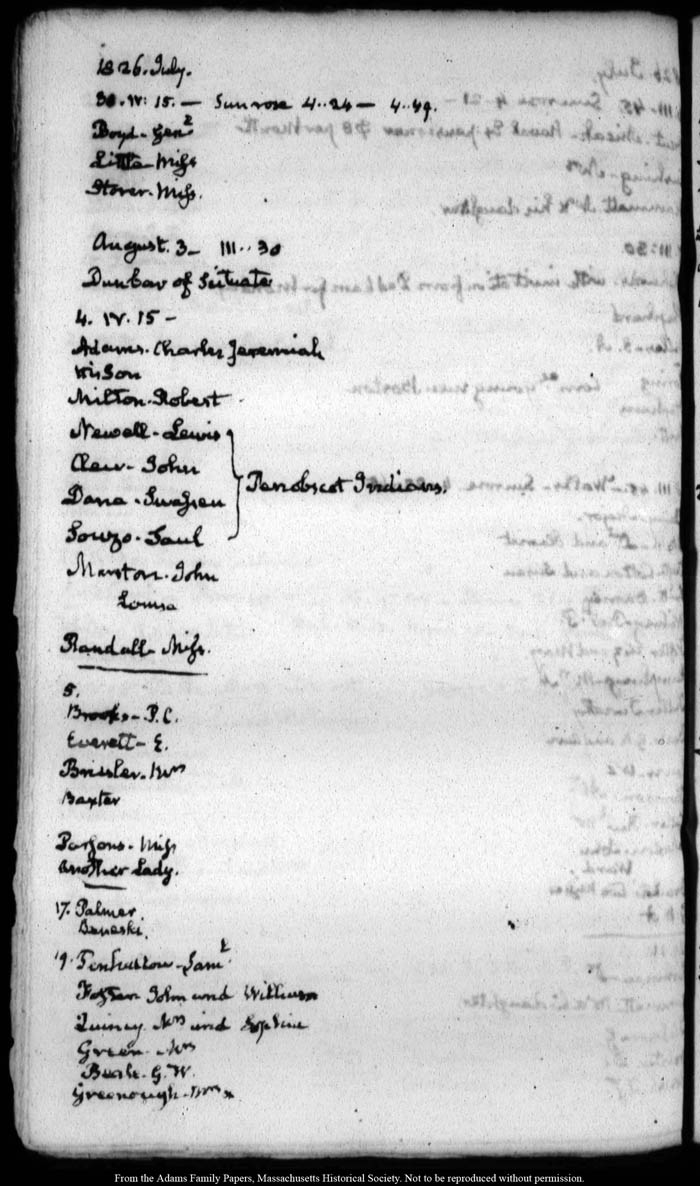 1826. July.
30. IV: 15. — Sun rose 4..24 — 4..49.
Boyd - Genl
Little - Miss
Storer - Miss.
August. 3 - III..30
Dunbar of Scituate
4. IV. 15 -
Adams. Charles Jeremiah
His Son
Milton - Robert
Newell - Lewis
John
Dana - Swassen
Penobscot Indians.
Saul
Marston - John
Louisa
Randall - Miss.
5.
Brooks - P. C.
Everett - E.
Brisler - Mrs
Baxter
Parsons - Miss
Another Lady.
17. Palmer
Beneski.
19. Penhallow - Saml
Foster John and William
Quincy Mrs and Sophia
Green - Mrs
Beale - G. W.
Greenough - Mrs x
From the Adams Family Papers, Massachusetts Historical Society. Not to be reproduced without permission.